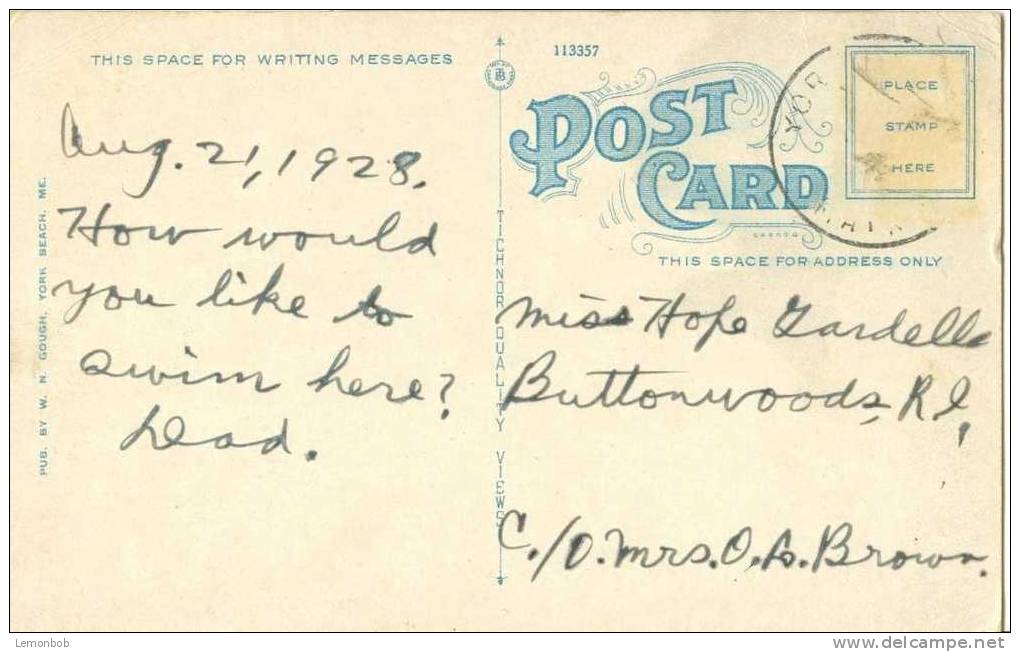 THIS SPACE FOR WRITING MESSAGES
Aug. 21, 1928.
How would
you like to
swim here?
Dad.
PUB. BY W. N. GOUGH, YORK BEACH, ME.
TICHNOR QUALITY VIEWS
113357
POST
CARD
PLACE
STAMP
HERE
YOR
MAIN
THIS SPACE FOR ADDRESS ONLY
Miss Hope Gardella
Buttonwoods, R.I.
C./O. Mrs. O. A. Brown.
Lemonbob
www.delcampe.net